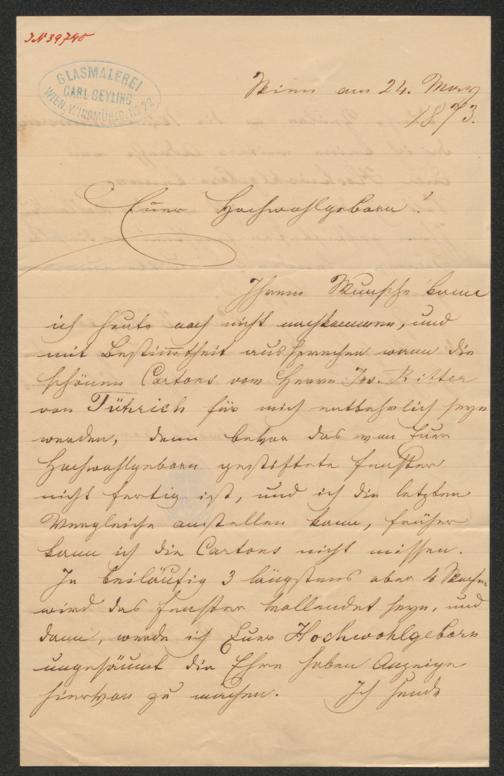 J.N 39740
GLASMALEREI
CARL GEYLING
WIEN, V. WINDMÜHLG. 22
Wien am 24. May
1873.
Euer Hochwohlgeborn!
Ihrem Wunsche kann
ich heute noch nicht nachkommen, und
mit Bestimtheit aussprechen wann die
schönen Cartons vom Herrn Jos. Ritter
von Führich für mich entbehrlich seyn
werden, denn bevor das von Euer
Hochwohlgeborn gestiftete Fenster
nicht fertig ist, und ich die letzten
Vergleiche anstellen kann, früher
kann ich die Cartons nicht missen.
In beiläufig 3 längstens aber 4 Wochen
wird das Fenster vollendet seyn, und
dann, werde ich Euer Hochwohlgeborn
ungesäumt die Ehre haben Anzeige
hiervon zu machen. Ich sende